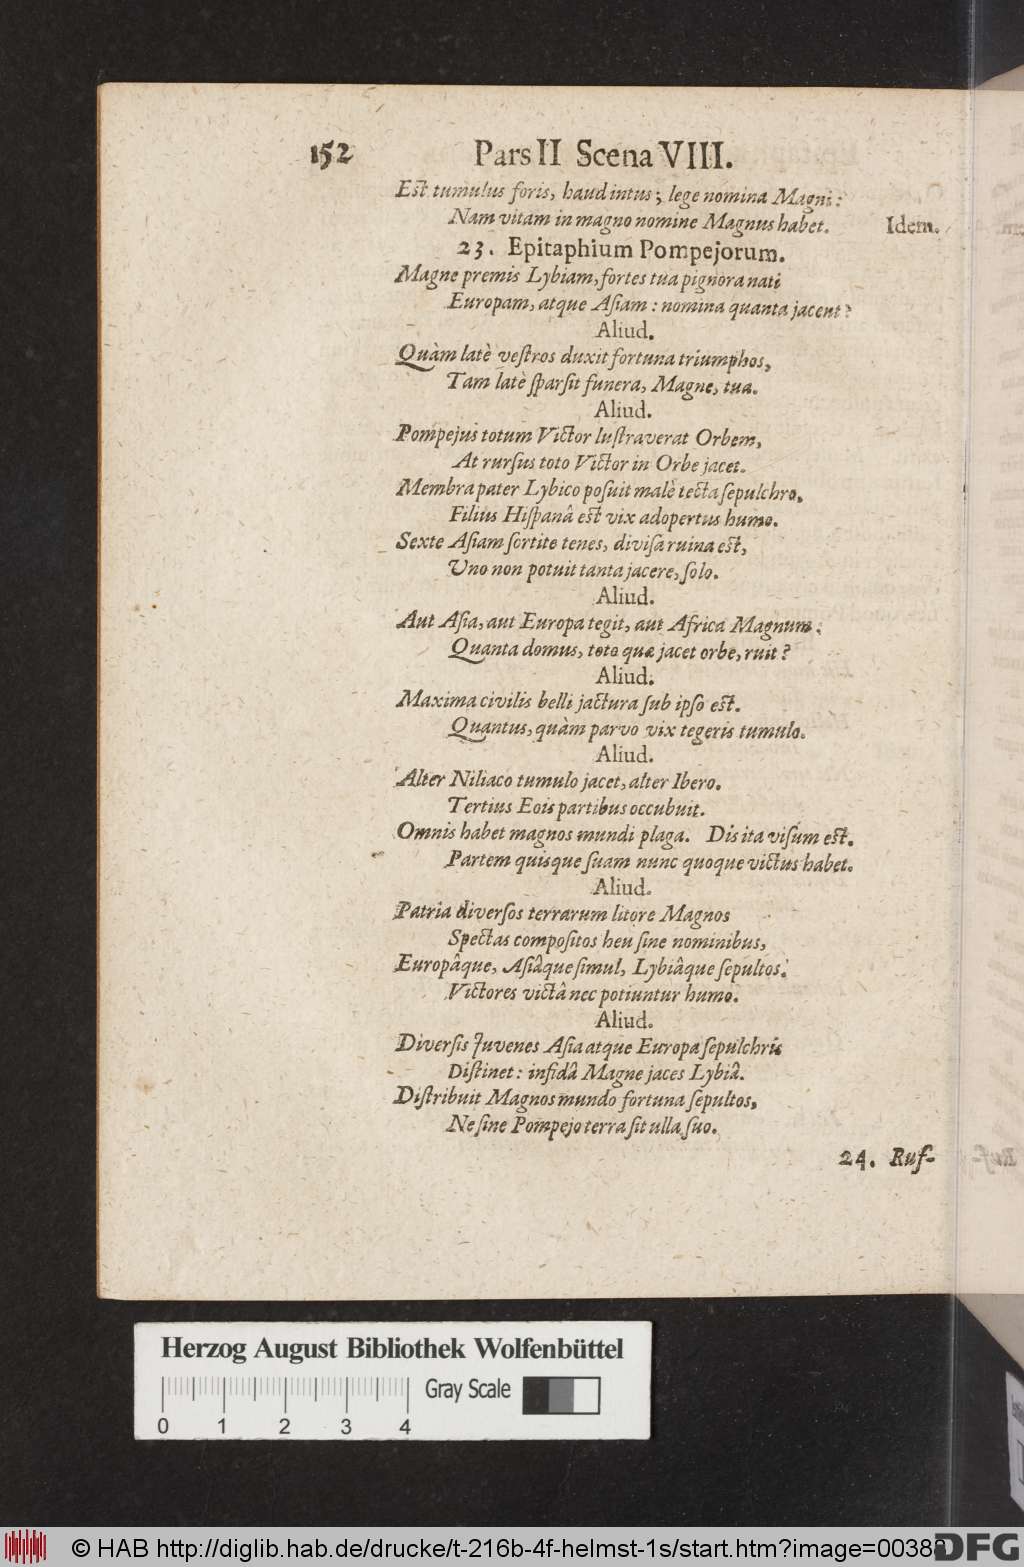 152 Pars II Scena VIII.
Est tumulus foris, haud intus; lege nomina Magni:
Nam vitam in magno nomine Magnus habet. Idem.
23. Epitaphium Pompejorum.
Magne premis Lybiam, fortes tua pignora nati
Europam, atque Aſiam: nomina quanta jacent?
Aliud.
Quàm latè veſtros duxit fortuna triumphos,
Tam latè ſparſit funera, Magne, tua.
Aliud.
Pompejus totum Victor luſtraverat Orbem,
At rurſus toto Victor in Orbe jacet.
Membra pater Lybico poſuit malè tecta ſepulchro,
Filius Hiſpanâ est vix adopertus humo.
Sexte Aſiam ſortite tenes, diviſa ruina est,
Uno non potuit tanta jacere, ſolo.
Aliud.
Aut Aſia, aut Europa tegit, aut Africa Magnum:
Quanta domus, toto quæ jacet orbe, ruit?
Aliud.
Maxima civilis belli jactura ſub ipſo est.
Quantus, quàm parvo vix tegeris tumulo.
Aliud.
Alter Niliaco tumulo jacet, alter Ibero.
Tertius Eois partibus occubuit.
Omnis habet magnos mundi plaga. Dis ita viſum est.
Partem quisque ſuam nunc quoque victus habet.
Aliud.
Patria diverſos terrarum litore Magnos
Spectas compoſitos heu ſine nominibus,
Europâque, Aſiâque ſimul, Lybiâque ſepultos:
Victores victâ nec potiuntur humo.
Aliud.
Diverſis Juvenes Aſia atque Europa ſepulchris
Diſtinet: infidâ Magne jaces Lybiâ.
Diſtribuit Magnos mundo fortuna ſepultos,
Ne ſine Pompejo terra ſit ulla ſuo.
24. Ruf-
Herzog August Bibliothek Wolfenbüttel
Gray Scale
0 1 2 3 4
© HAB http://diglib.hab.de/drucke/t-216b-4f-helmst-1s/start.htm?image=00388
DFG